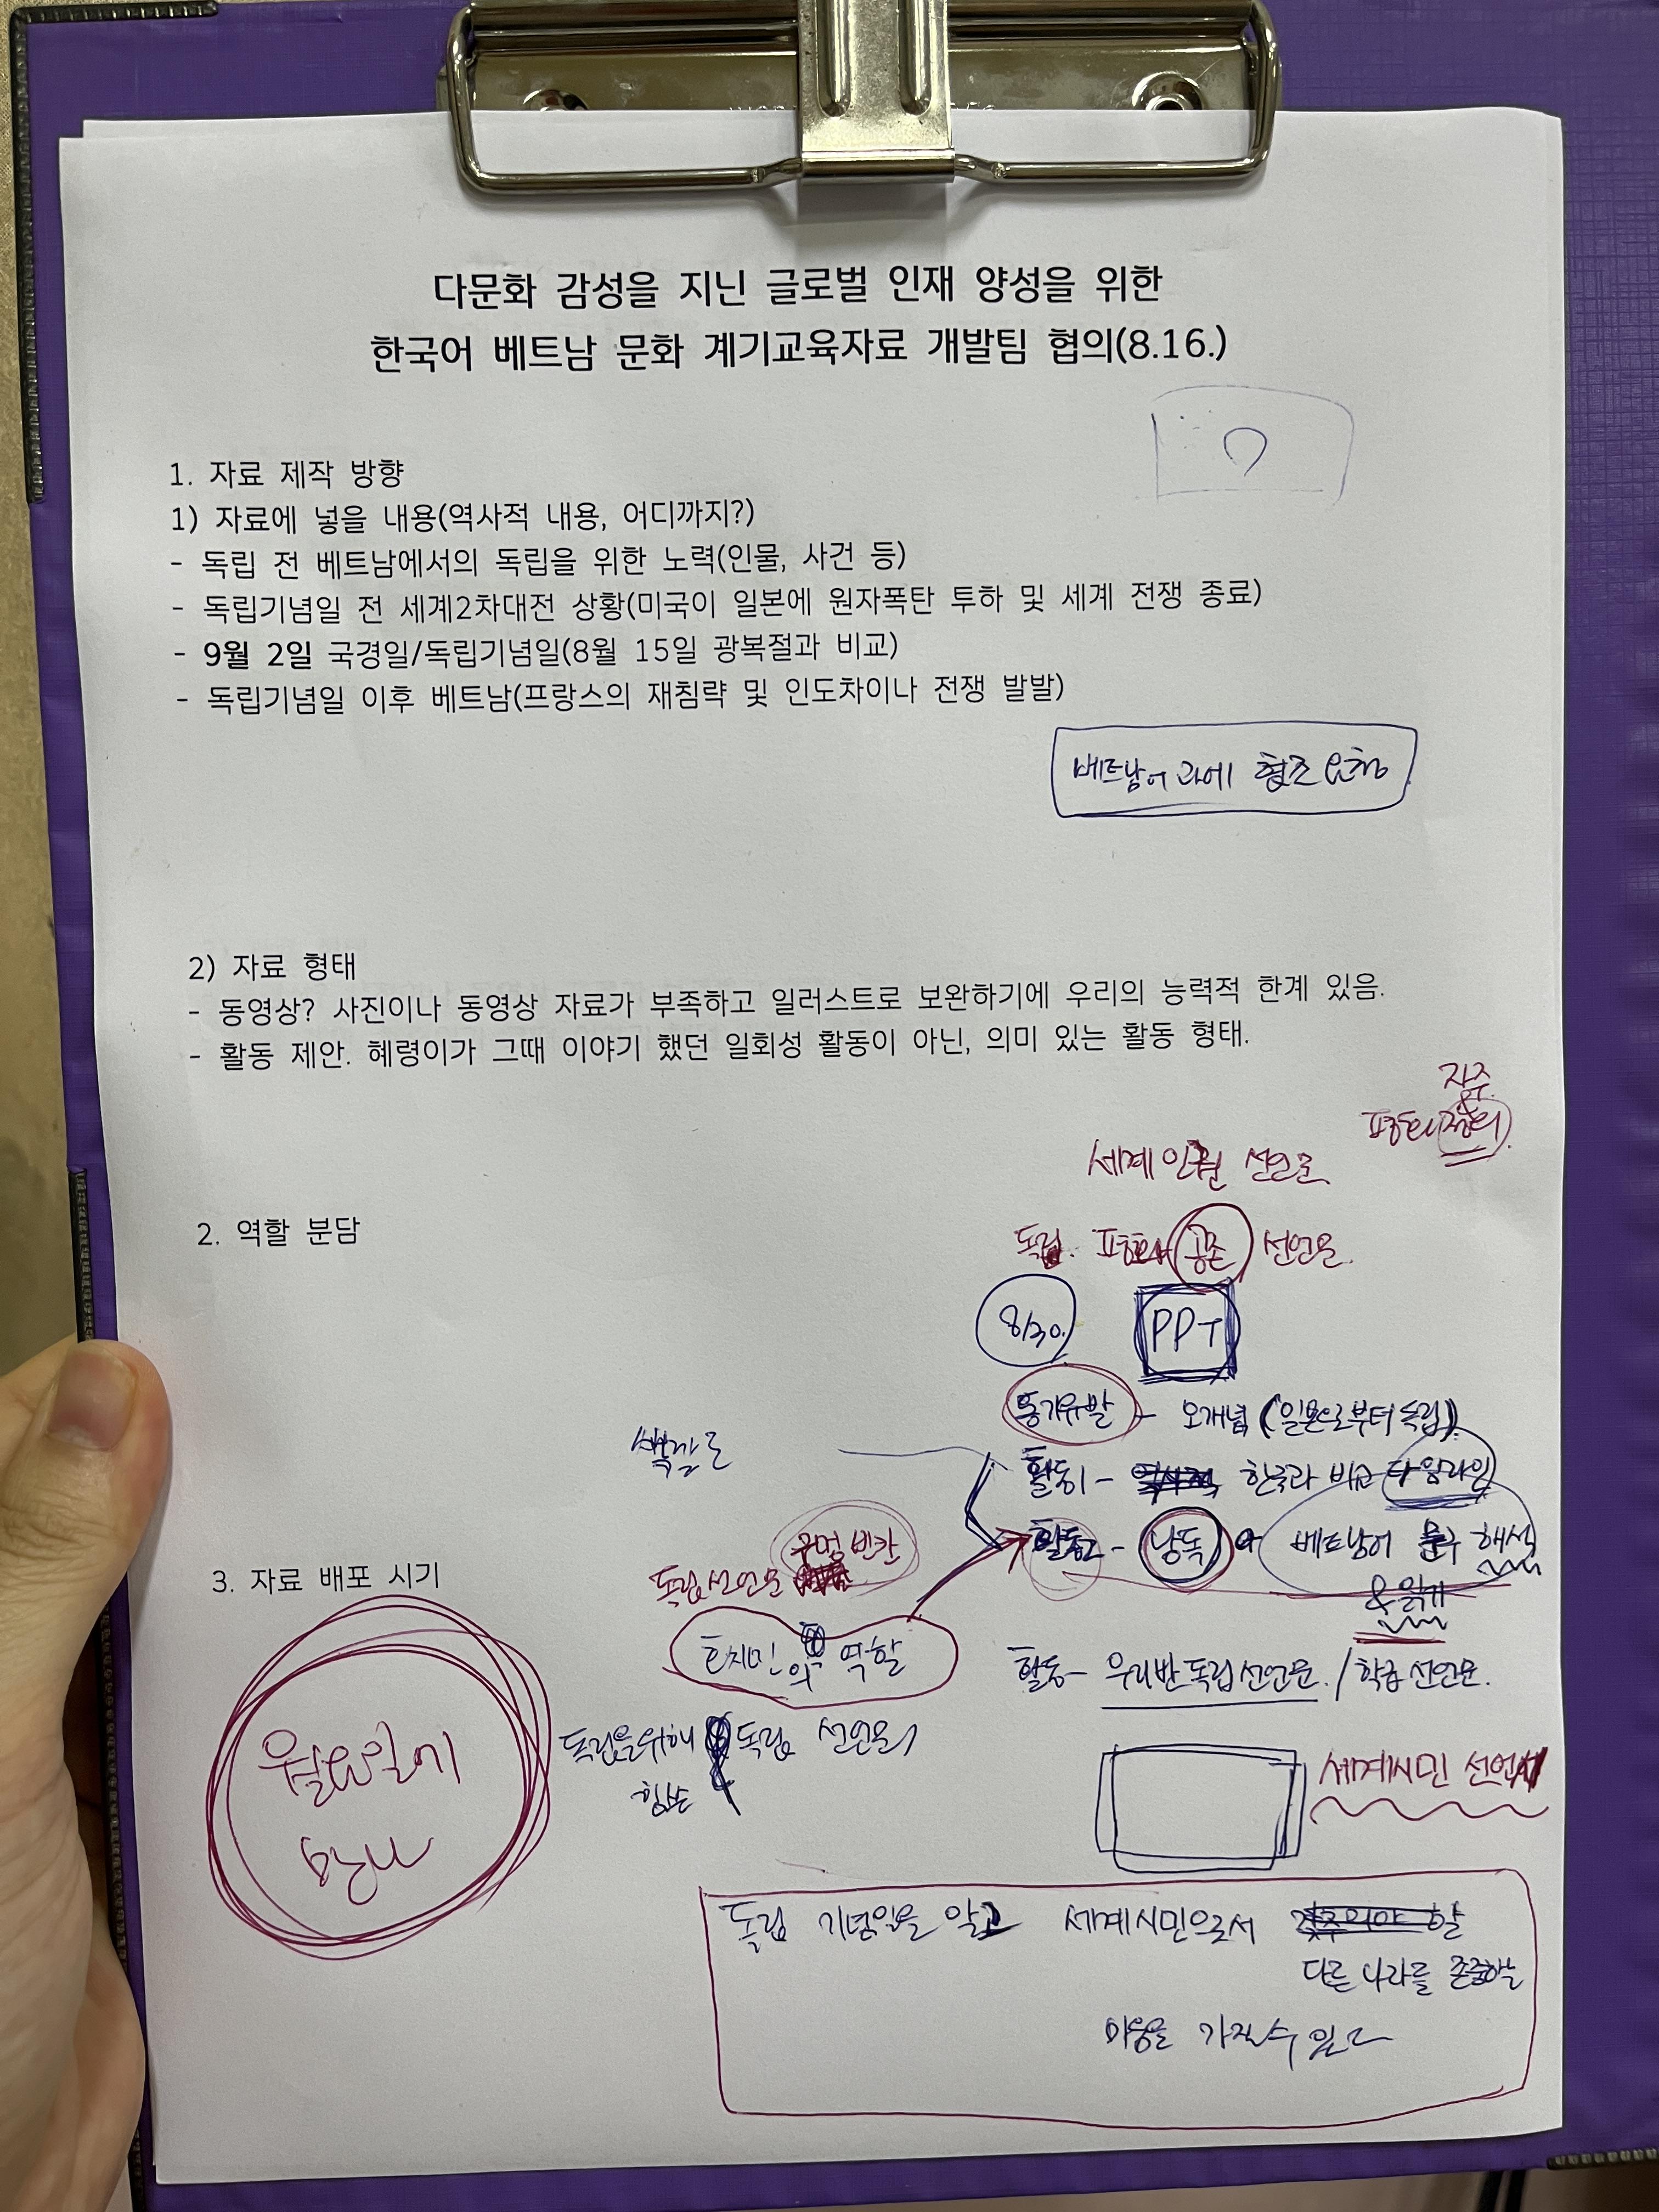 다문화 감성을 지닌 글로벌 인재 양성을 위한
한국어 베트남 문화 계기교육자료 개발팀 협의(8.16.)
1. 자료 제작 방향
1) 자료에 넣을 내용(역사적 내용, 어디까지?)
- 독립 전 베트남에서의 독립을 위한 노력(인물, 사건 등)
- 독립기념일 전 세계2차대전 상황(미국이 일본에 원자폭탄 투하 및 세계 전쟁 종료)
- 9월 2일 국경일/독립기념일(8월 15일 광복절과 비교)
- 독립기념일 이후 베트남(프랑스의 재침략 및 인도차이나 전쟁 발발)
베트남어과에 협조 요청
2) 자료 형태
- 동영상? 사진이나 동영상 자료가 부족하고 일러스트로 보완하기에 우리의 능력적 한계 있음.
- 활동 제안. 혜령이가 그때 이야기 했던 일회성 활동이 아닌, 의미 있는 활동 형태.
자주
평화 정의
세계 인권 선언문
2. 역할 분담
독립. 평화 공존 선언문.
8/30. PPT
동기유발 - 오개념 (일본으로부터 독립)
색깔로
활동1 - 한국과 비교 타임라인
구멍 빈칸
활동2 - 낭독 베트남어 문구 해석
3. 자료 배포 시기
독립선언문
& 읽기
호치민의 역할
활동 - 우리반 독립선언문. / 학급 선언문.
독립을위해 독립 선언문
힘쓴
월요일에
만나
세계시민 선언
독립 기념일을 알고 세계시민으로서 할
다른 나라를 존중하는
마음을 가질 수 있다